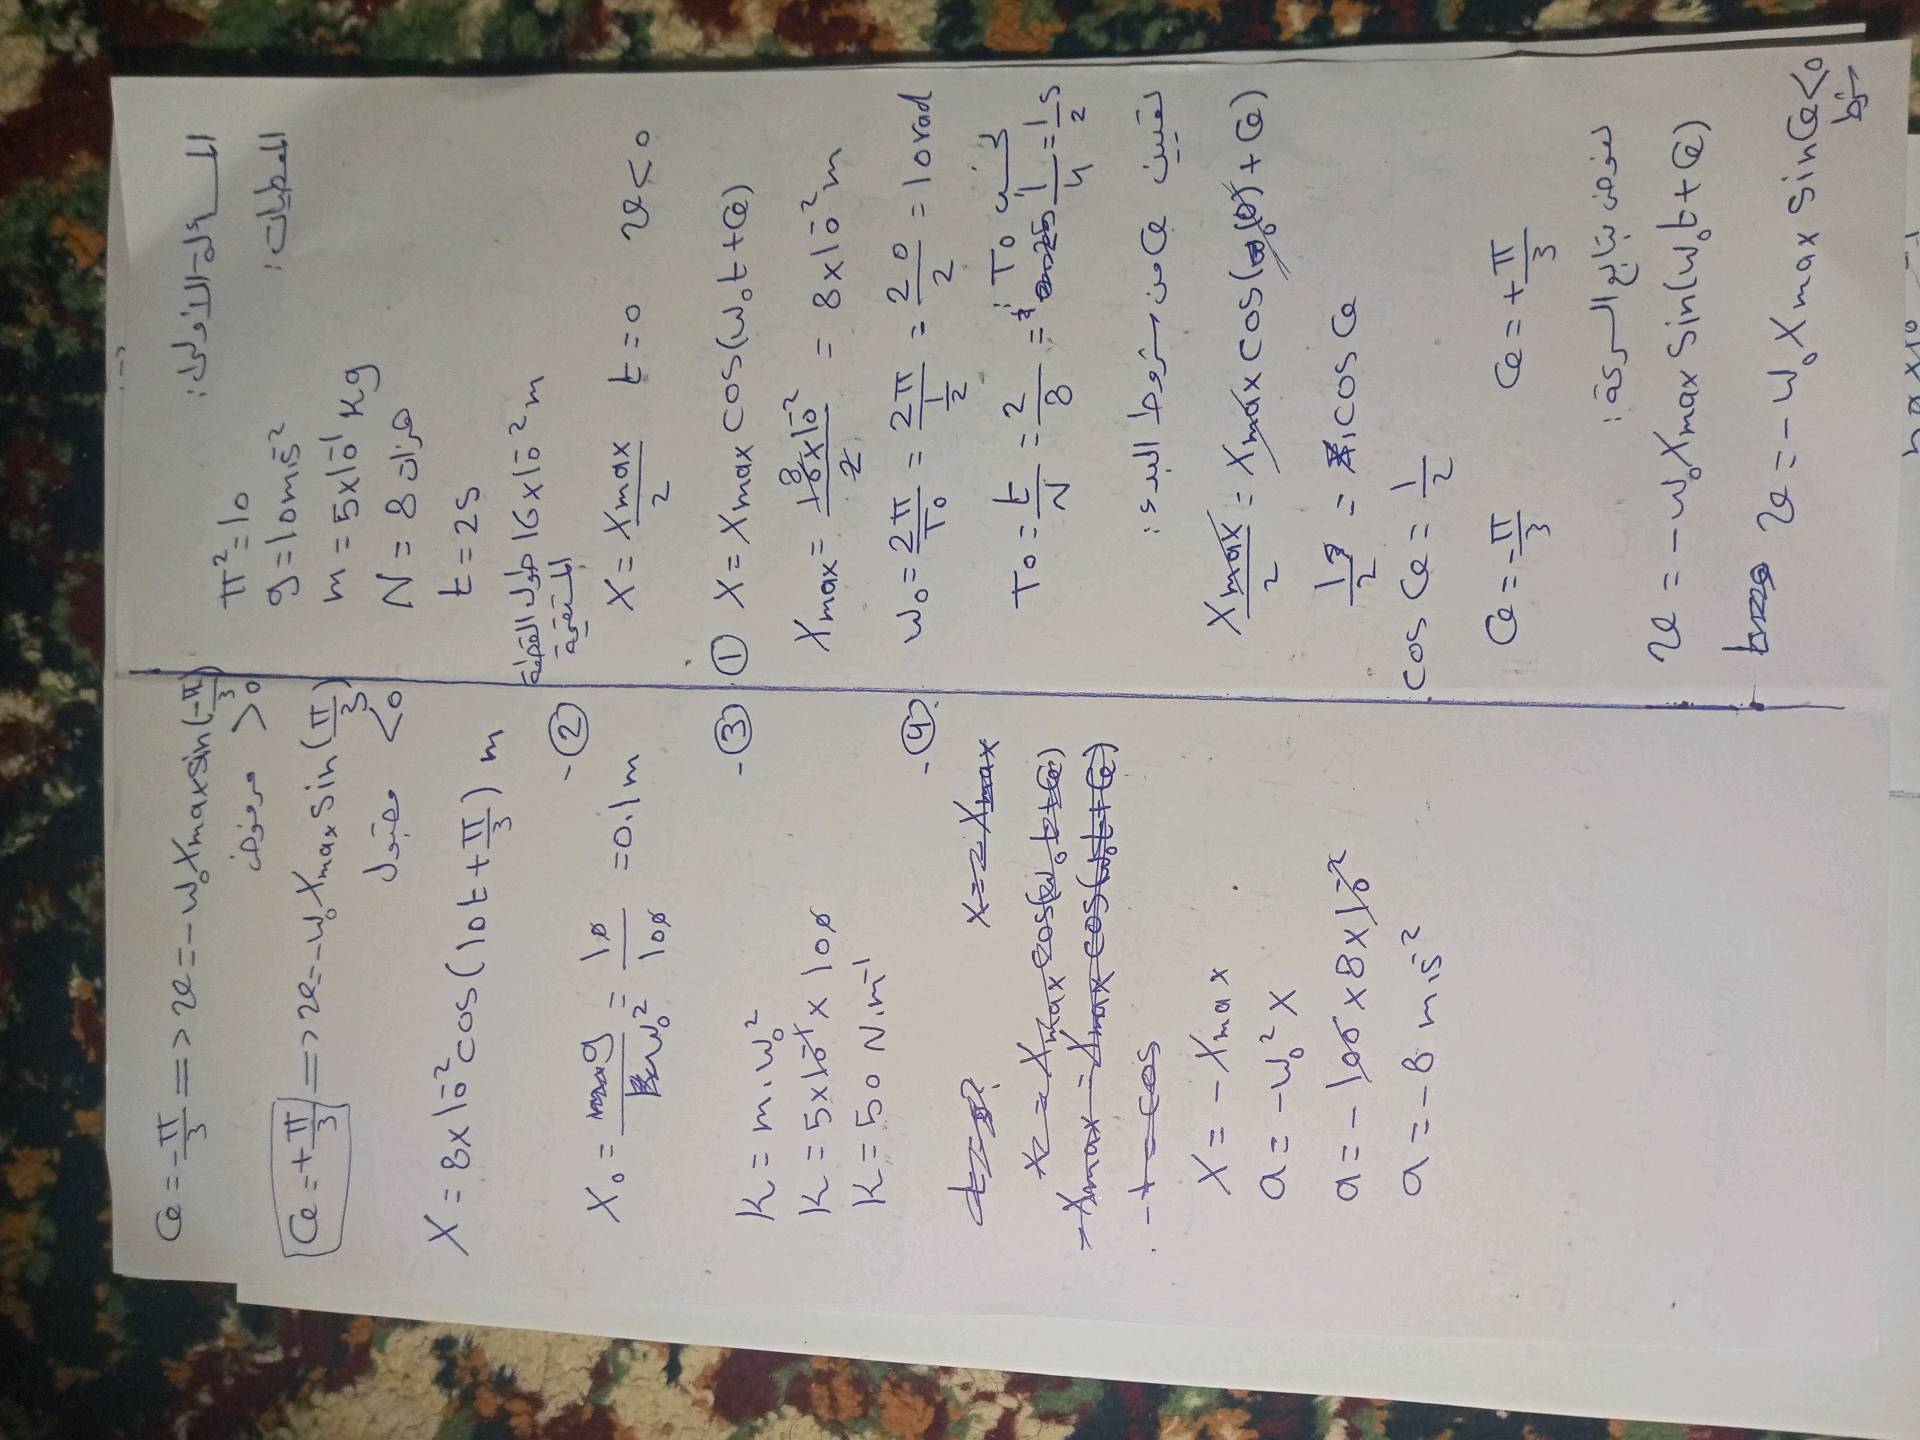 المسألة الأولى:
المعطيات:
π²=10
g=10m.s⁻²
m=5x10⁻¹ Kg
N=8 هزات
t=2s
16x10⁻² m طول القطعة
المستقيمة
X=Xmax/2 t=0 v<0
① X=Xmax cos(ω₀t+φ)
Xmax=16x10⁻²/2 = 8x10⁻² m
ω₀=2π/T₀=2π/(1/2)=20/2=10rad
نحسب T₀:
T₀=t/N=2/8=1/4=1/2 s
لتعيين φ من شروط البدء:
Xmax/2=Xmax cos(ω₀(0)+φ)
1/2=cos φ
cos φ=1/2
φ=-π/3 φ=+π/3
نعوض بتابع السرعة:
v=-ω₀Xmax sin(ω₀t+φ)
v=-ω₀Xmax sinφ<0
شرط
φ=-π/3 => v=-ω₀Xmax sin(-π/3)
مرفوض >0
φ=+π/3 => v=-ω₀Xmax sin(π/3)
مقبول <0
X=8x10⁻² cos(10t+π/3) m
-②
X₀=g/ω₀²=10/100=0.1m
-③
K=m.ω₀²
K=5x10⁻¹x100
K=50 N.m⁻¹
-④
X=-Xmax
a=-ω₀²X
a=-100x8x10⁻²
a=-8 m.s⁻²